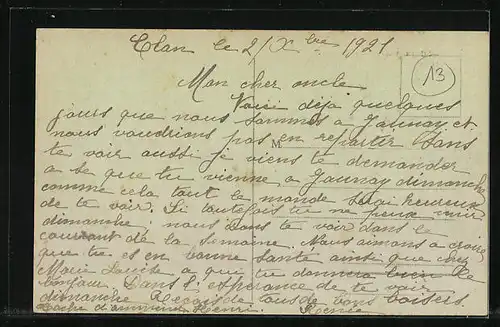 Clan le 2/Xbre 1921
13
Mon cher oncle
Voici déja quelques
jours que nous sommes a Jaunay et
nous voudrions pas en repartir sans
M
te voir aussi je viens te demander
a se que tu vienne a Jaunay dimanche
comme cela tout le monde sera heureux
de te voir. Si toutefois tu ne peux venir
dimanche, nous dans te voir dans le
courant de la semaine. Nous aimons a croire
que tu es en bonne santé ainsi que chez
Marie Louise a que tu donnera bien le
bonjour. Dans l'espérance de te voir
dimanche Reçois de tous de bons baisers
Henri. Renée